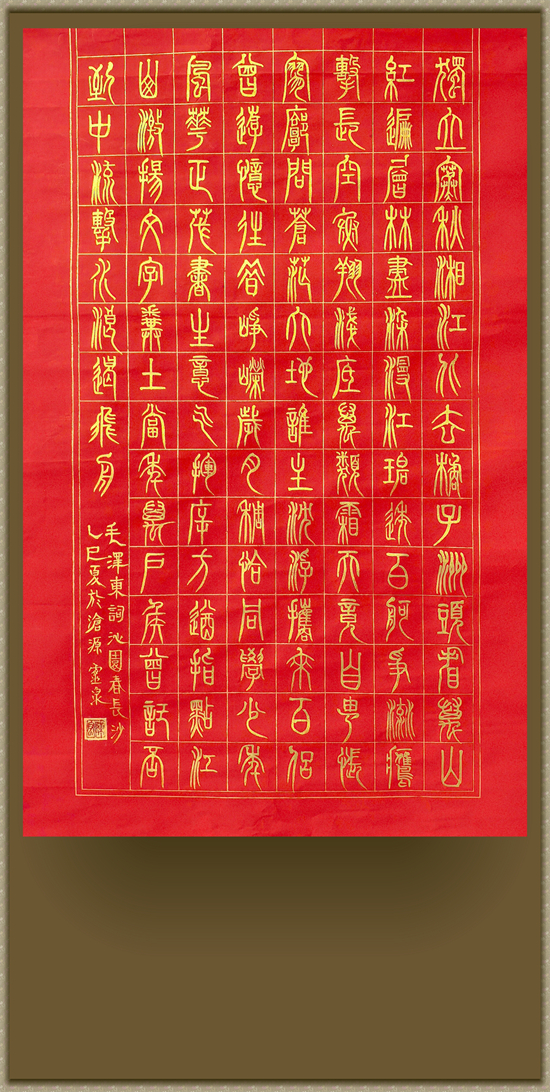 獨立寒秋湘江北去橘子洲頭看萬山
紅遍層林盡染漫江碧透百舸爭流鷹
擊長空魚翔淺底萬類霜天競自由悵
寥廓問蒼茫大地誰主沉浮攜來百侶
曾遊憶往昔崢嶸歲月稠恰同學少年
風華正茂書生意氣揮斥方遒指點江
山激揚文字糞土當年萬戶侯曾記否
到中流擊水浪遏飛舟
毛澤東詞沁園春長沙
乙巳夏於滄源靈泉